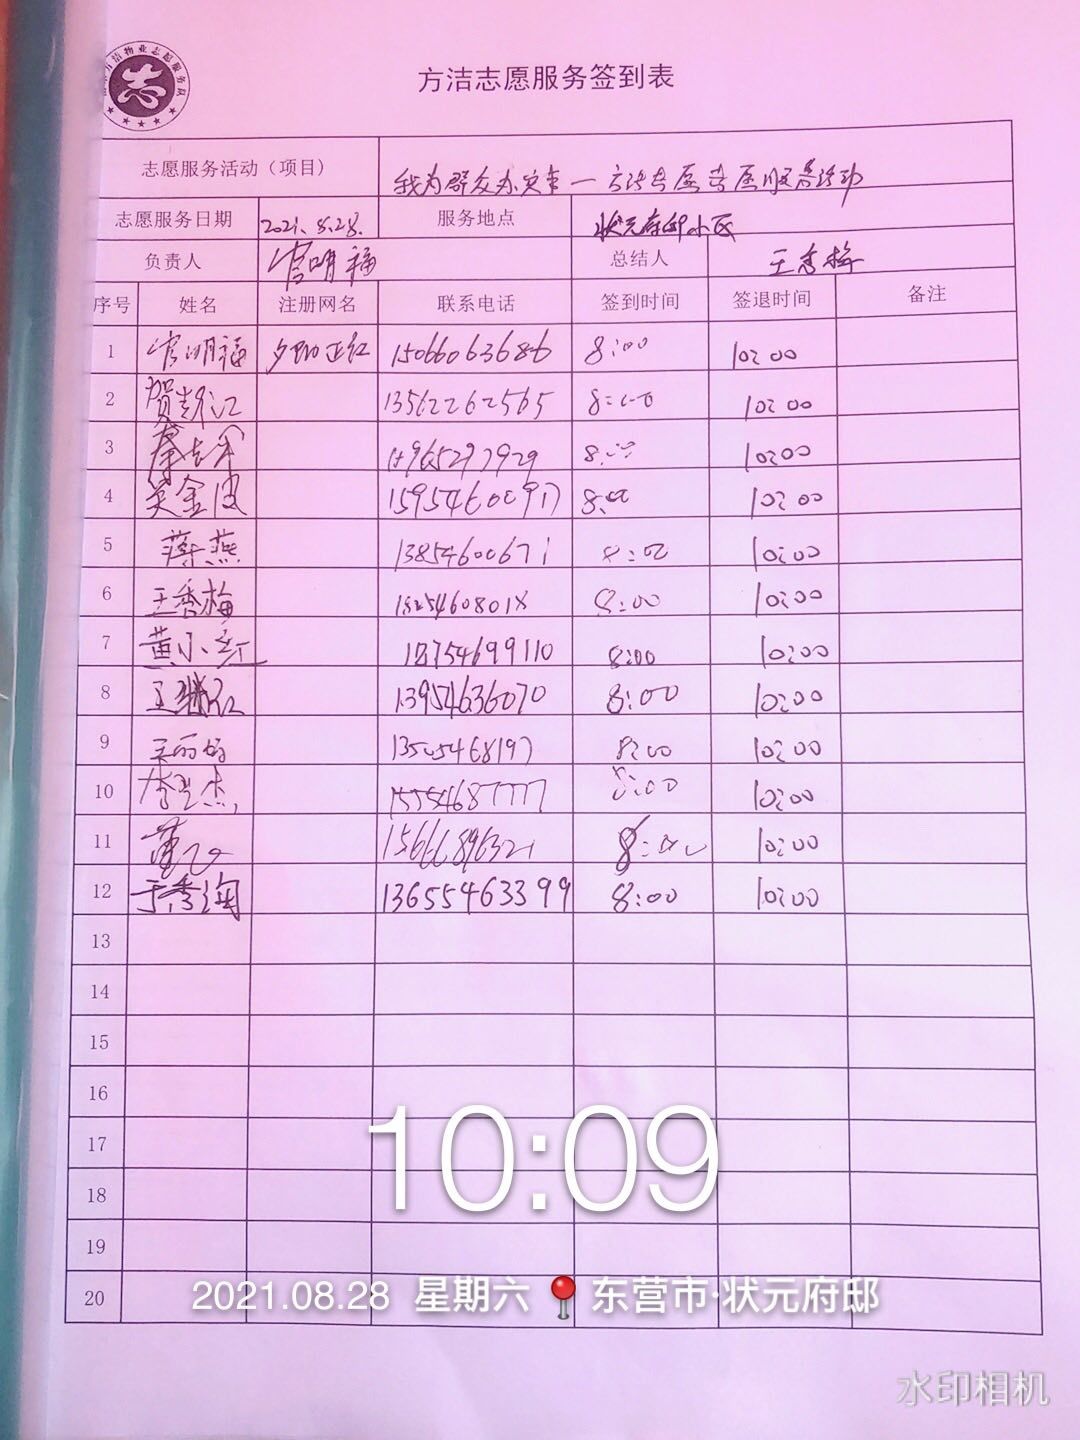 方洁物业志愿服务队
志
方洁志愿服务签到表
志愿服务活动（项目） 我为群众办实事一方洁志愿者服务活动
志愿服务日期 2021.8.28. 服务地点 状元府邸小区
负责人 官明福 总结人 王秀梅
序号 姓名 注册网名 联系电话 签到时间 签退时间 备注
1 官明福 夕阳正红 15066063686 8:00 10:00
2 13562262565 8:00 10:00
3 8:00 10:00
4 吴金波 15954600917 8:00 10:00
5 蒋燕 13854600671 8:00 10:00
6 王秀梅 1825460801X 8:00 10:00
7 黄小红 18754699110 8:00 10:00
8 王继红 13954636070 8:00 10:00
9 13505468197 8:00 10:00
10 15554687777 8:00 10:00
11 15666896321 8:00 10:00
12 于秀海 13655463399 8:00 10:00
13
14
15
16
17
18
19
20
10:09
2021.08.28 星期六 东营市·状元府邸
水印相机